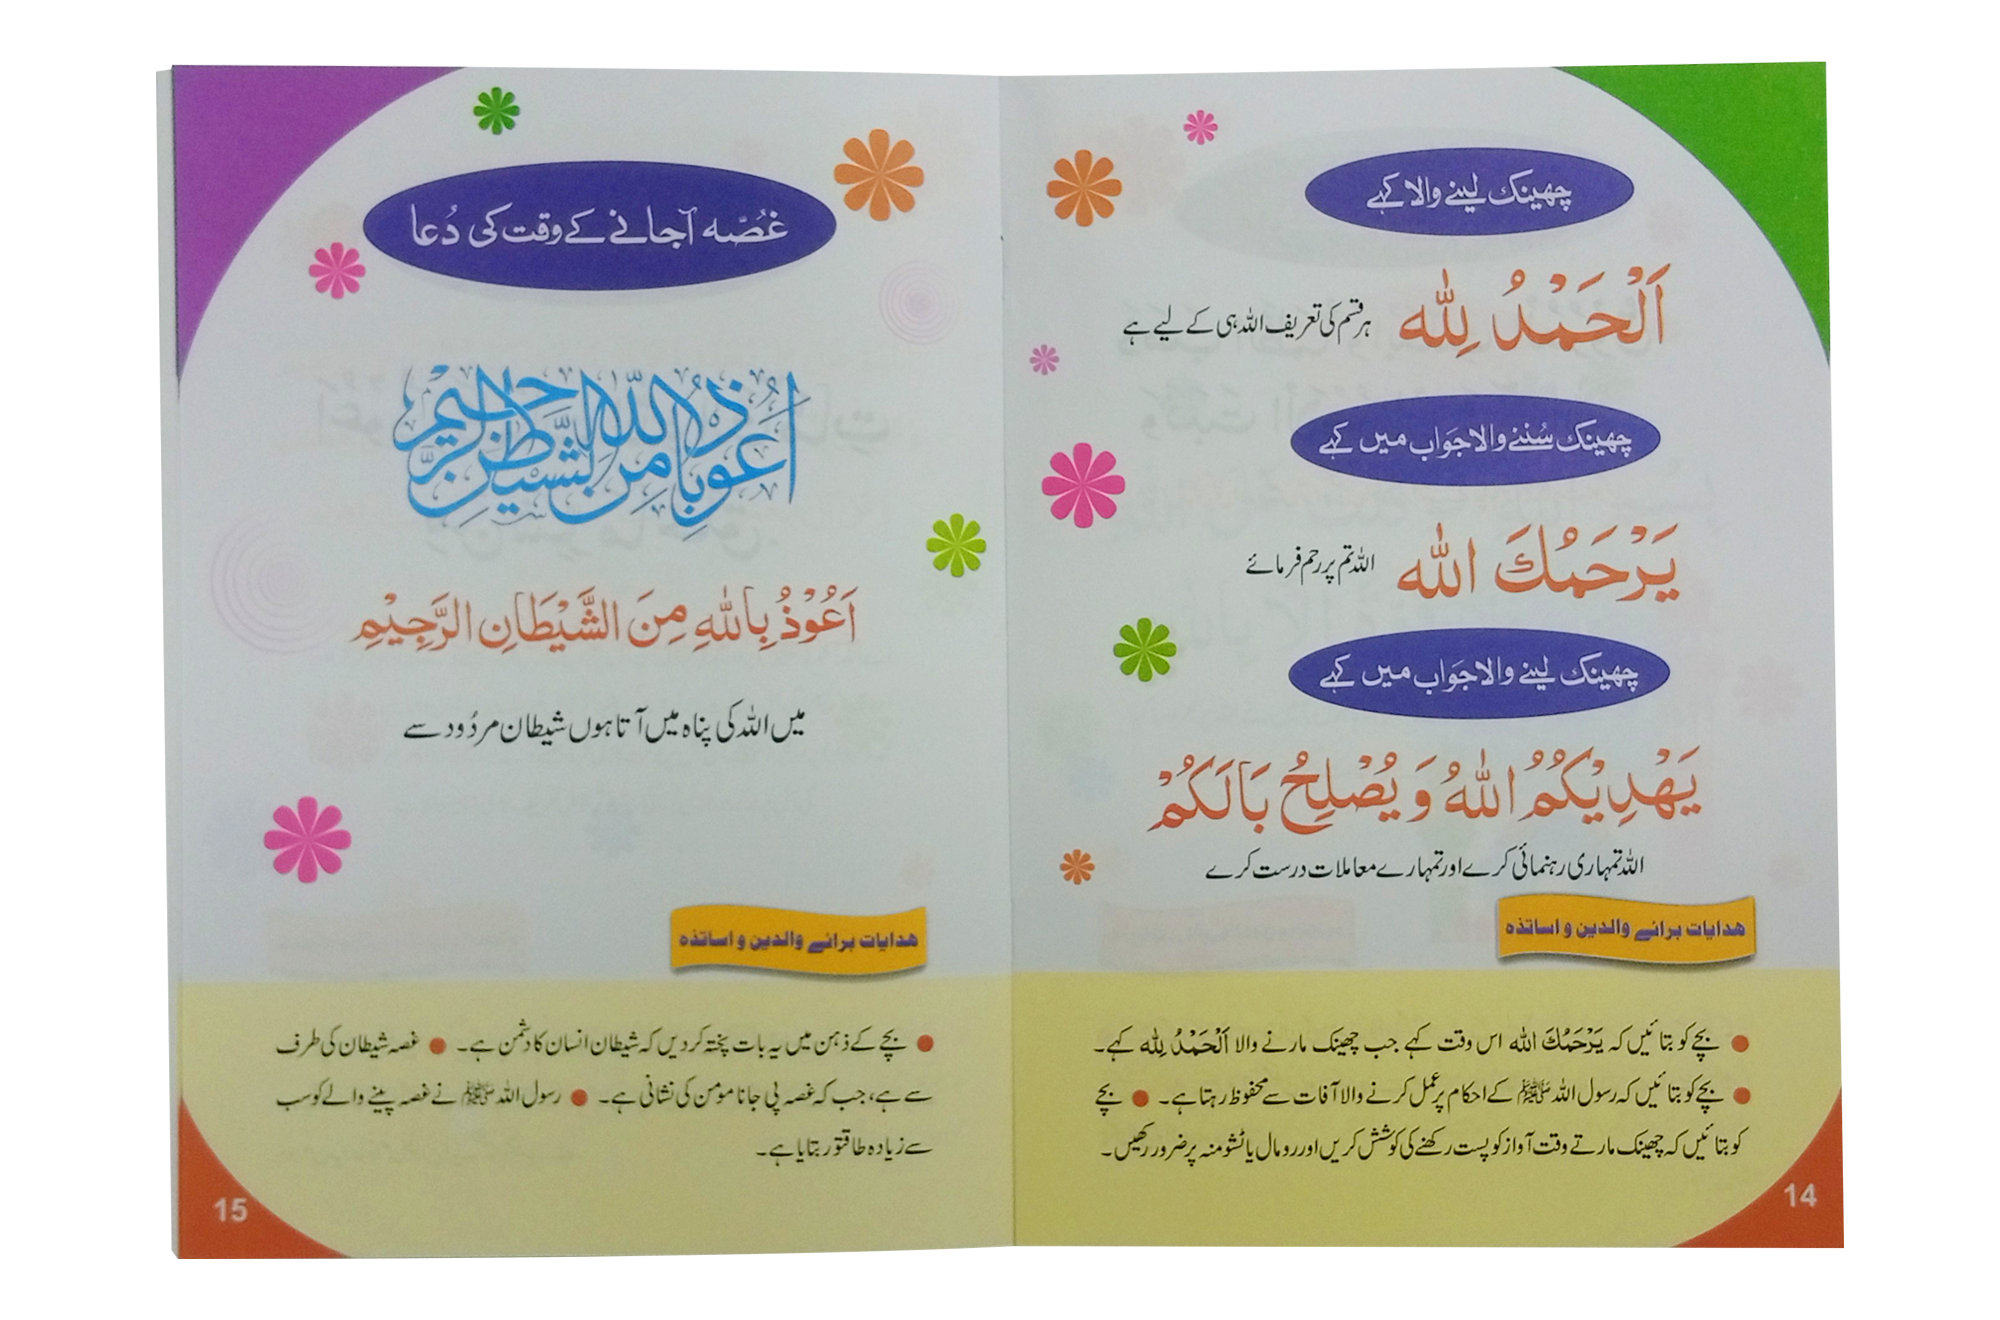 چھینک لینے والا کہے
اَلْحَمْدُ لِلّٰه ہر قسم کی تعریف اللہ ہی کے لیے ہے
چھینک سُننے والا جَواب میں کہے
يَرْحَمُكَ اللّٰه اللہ تم پر رحم فرمائے
چھینک لینے والا جَواب میں کہے
يَهْدِيْكُمُ اللّٰهُ وَ يُصْلِحُ بَالَكُمْ
اللہ تمہاری رہنمائی کرے اور تمہارے معاملات درست کرے
ھدایات برائے والدین و اساتذہ
● بچے کو بتائیں کہ يَرْحَمُكَ اللّٰه اس وقت کہے جب چھینک مارنے والا اَلْحَمْدُ لِلّٰه کہے۔
● بچے کو بتائیں کہ رسول اللہ ﷺ کے احکام پر عمل کرنے والا آفات سے محفوظ رہتا ہے۔ ● بچے
کو بتائیں کہ چھینک مارتے وقت آواز کو پست رکھنے کی کوشش کریں اور رومال یا ٹشو منہ پر ضرور رکھیں۔
14
غُصّہ آجانے کے وقت کی دُعا
اعوذ بالله من الشيطن الرجيم
اَعُوْذُ بِاللّٰهِ مِنَ الشَّيْطَانِ الرَّجِيْمِ
میں اللہ کی پناہ میں آتا ہوں شیطان مردُود سے
ھدایات برائے والدین و اساتذہ
● بچے کے ذہن میں یہ بات پختہ کر دیں کہ شیطان انسان کا دشمن ہے۔ ● غصہ شیطان کی طرف
سے ہے، جب کہ غصہ پی جانا مومن کی نشانی ہے۔ ● رسول اللہ ﷺ نے غصہ پینے والے کو سب
سے زیادہ طاقتور بتایا ہے۔
15